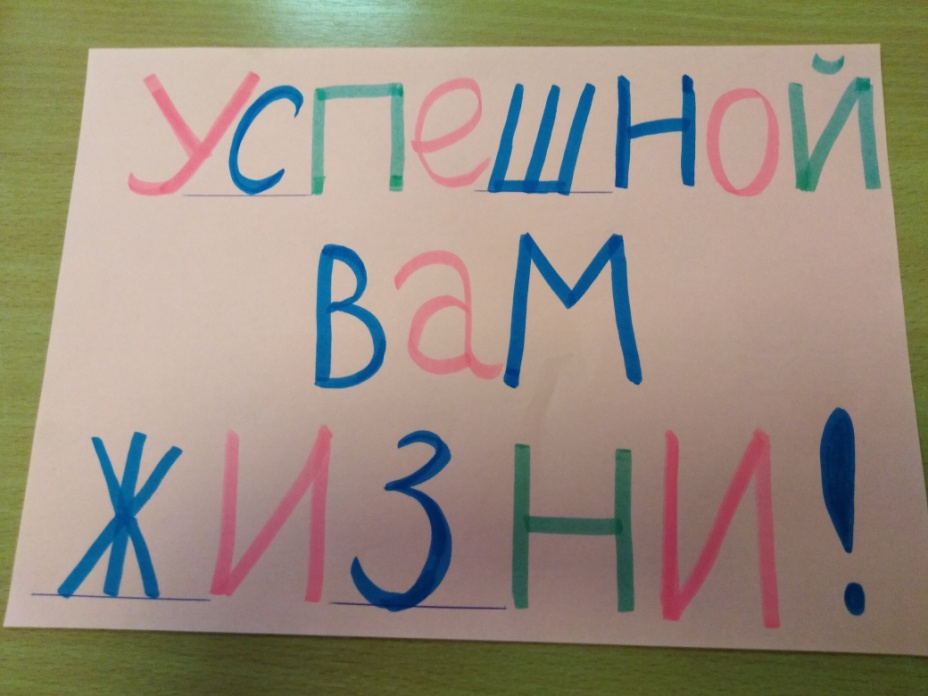 Успешной
вам
жизни!